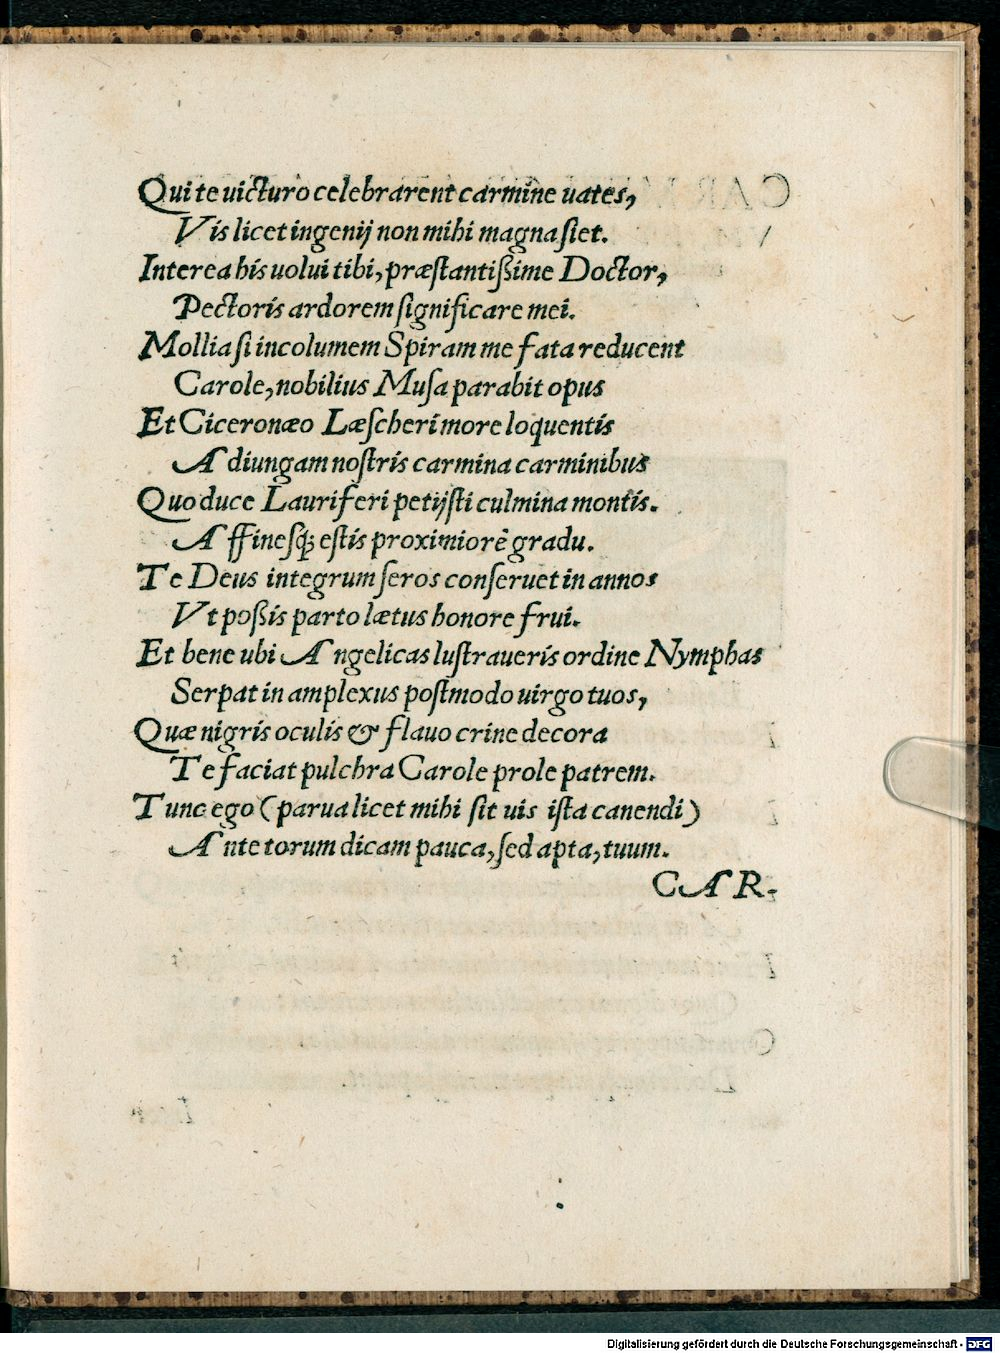 Qui te uicturo celebrarent carmine uates,
Vis licet ingenij non mihi magna siet.
Interea his uolui tibi, præstantißime Doctor,
Pectoris ardorem significare mei.
Mollia si incolumem Spiram me fata reducent
Carole, nobilius Musa parabit opus
Et Ciceronæo Læscheri more loquentis
Adiungam nostris carmina carminibus
Quo duce Lauriferi petijsti culmina montis.
Affinesq́; estis proximiorẽ gradu.
Te Deus integrum seros conseruet in annos
Vt poßis parto lætus honore frui.
Et bene ubi Angelicas lustraueris ordine Nymphas
Serpat in amplexus postmodo uirgo tuos,
Quæ nigris oculis & flauo crine decora
Te faciat pulchra Carole prole patrem.
Tunc ego (parua licet mihi sit uis ista canendi)
Ante torum dicam pauca, sed apta, tuum.
CAR-
Digitalisierung gefördert durch die Deutsche Forschungsgemeinschaft - DFG